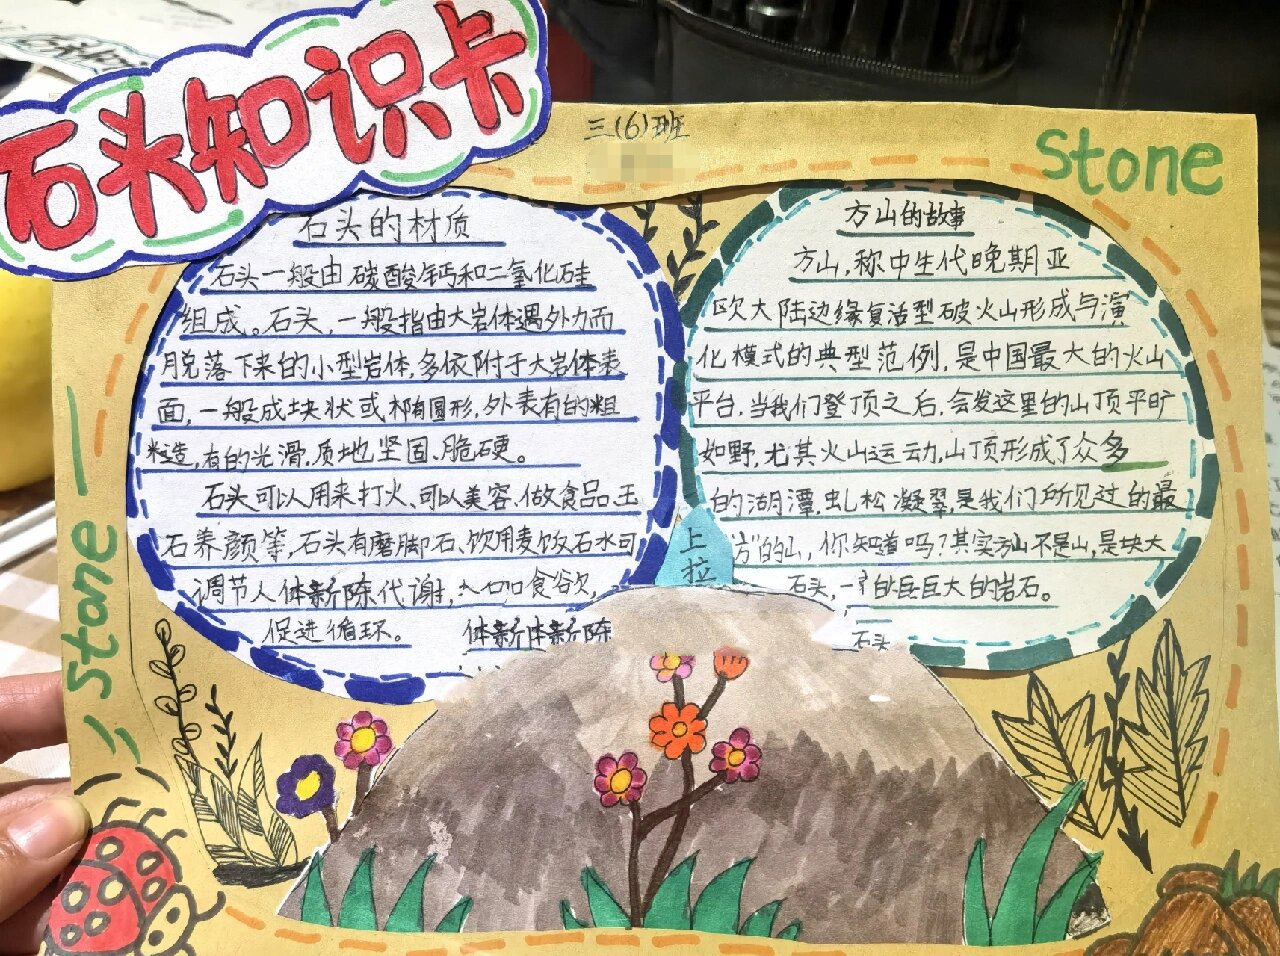 石头知识卡
三(6)班
stone
stone
石头的材质
石头一般由碳酸钙和二氧化硅
组成。石头,一般指由大岩体遇外力而
脱落下来的小型岩体,多依附于大岩体表
面,一般成块状或椭圆形,外表有的粗
糙,有的光滑,质地坚固、脆硬。
石头可以用来打火、可以美容、做食品、玉
石养颜等,石头有磨脚石、饮用麦饭石水可
调节人体新陈代谢,加食欲,
促进循环。
体新体新陈
方山的故事
方山,称中生代晚期亚
欧大陆边缘复活型破火山形成与演
化模式的典型范例,是中国最大的火山
平台,当我们登顶之后,会发这里的山顶平旷
如野,尤其火山运动,山顶形成了众多
的湖潭,虬松凝翠,是我们所见过的最
方"的山,你知道吗?其实方山不是山,是块大
石头,一的巨巨大的岩石。
石头
上拉